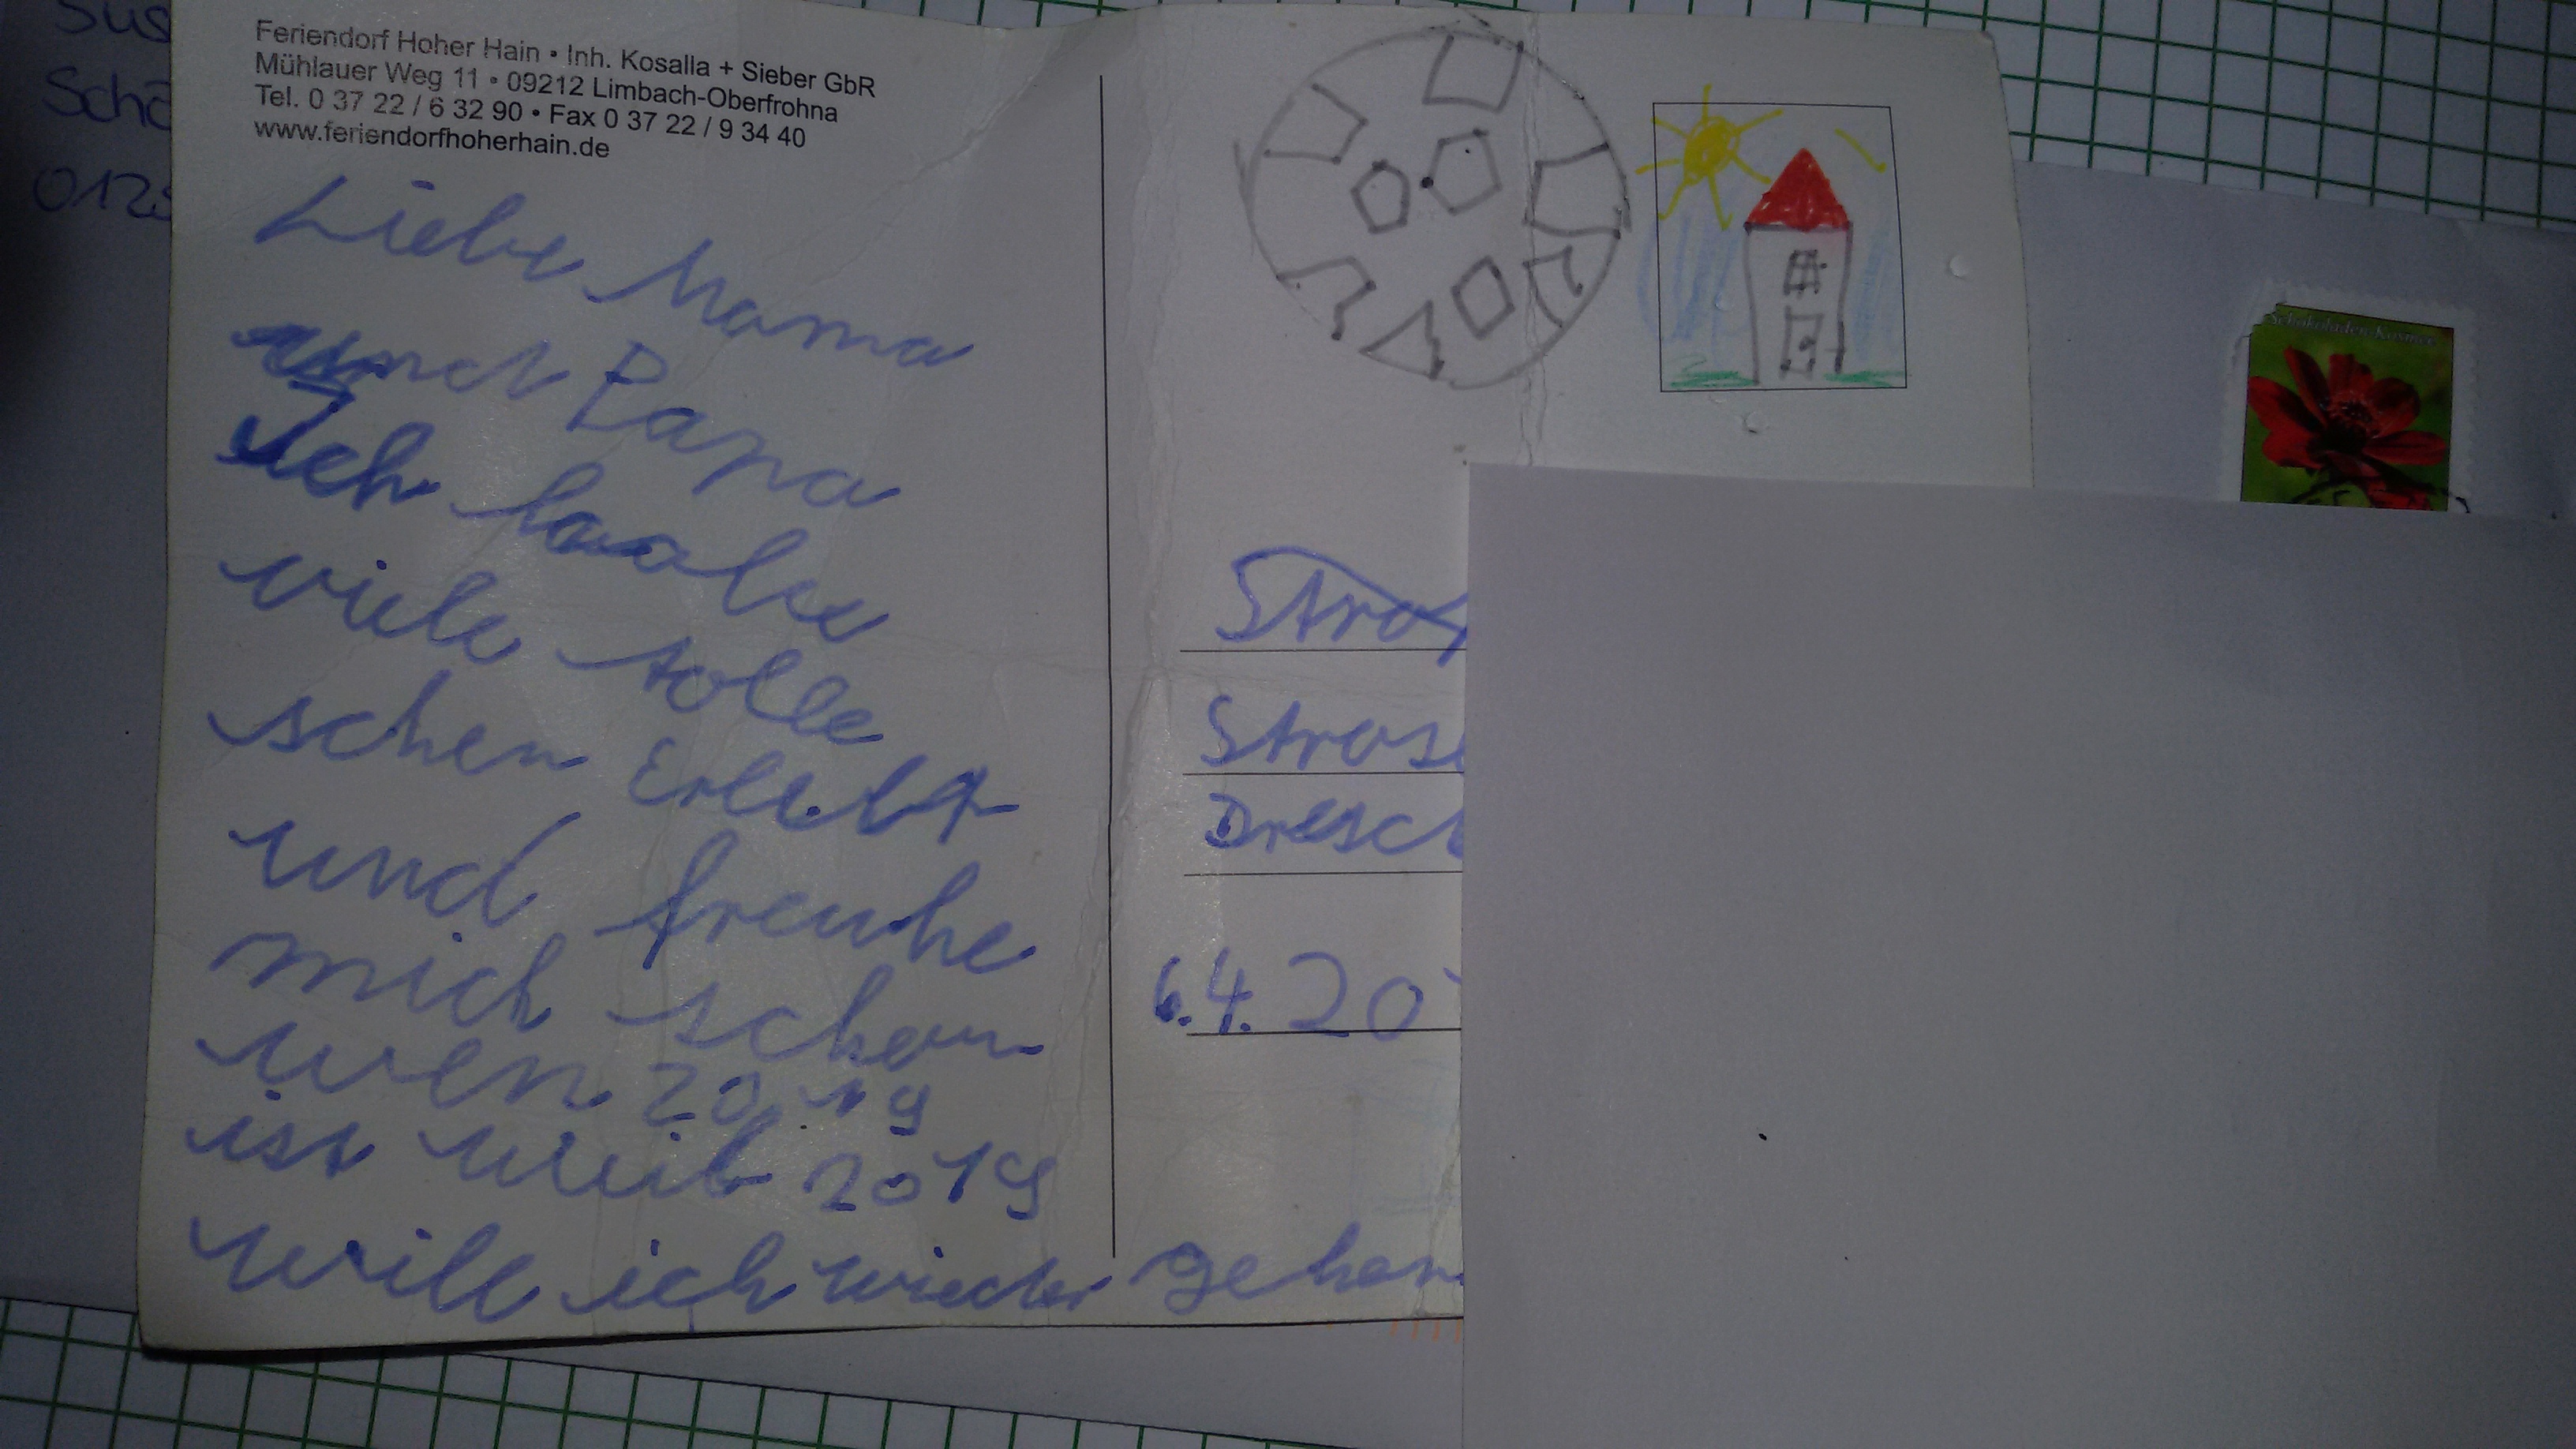 Sus
Schö
012
Feriendorf Hoher Hain • Inh. Kosalla + Sieber GbR
Mühlauer Weg 11 • 09212 Limbach-Oberfrohna
Tel. 0 37 22 / 6 32 90 • Fax 0 37 22 / 9 34 40
www.feriendorfhoherhain.de
Liebe Mama
und Papa
Ich haabe
viele tolle
schen Erlebt
und freuhe
mich schon
wen 20 19
ist weib 2019
will ich wieder gehen
Stra
Strase
Dresd
6.4. 20
Schokoladen-Kosmee